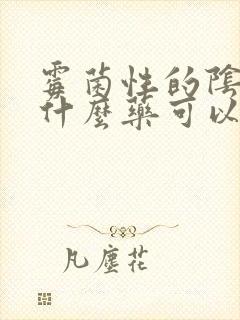 霉菌性的陰
什麼藥可以
凡塵花